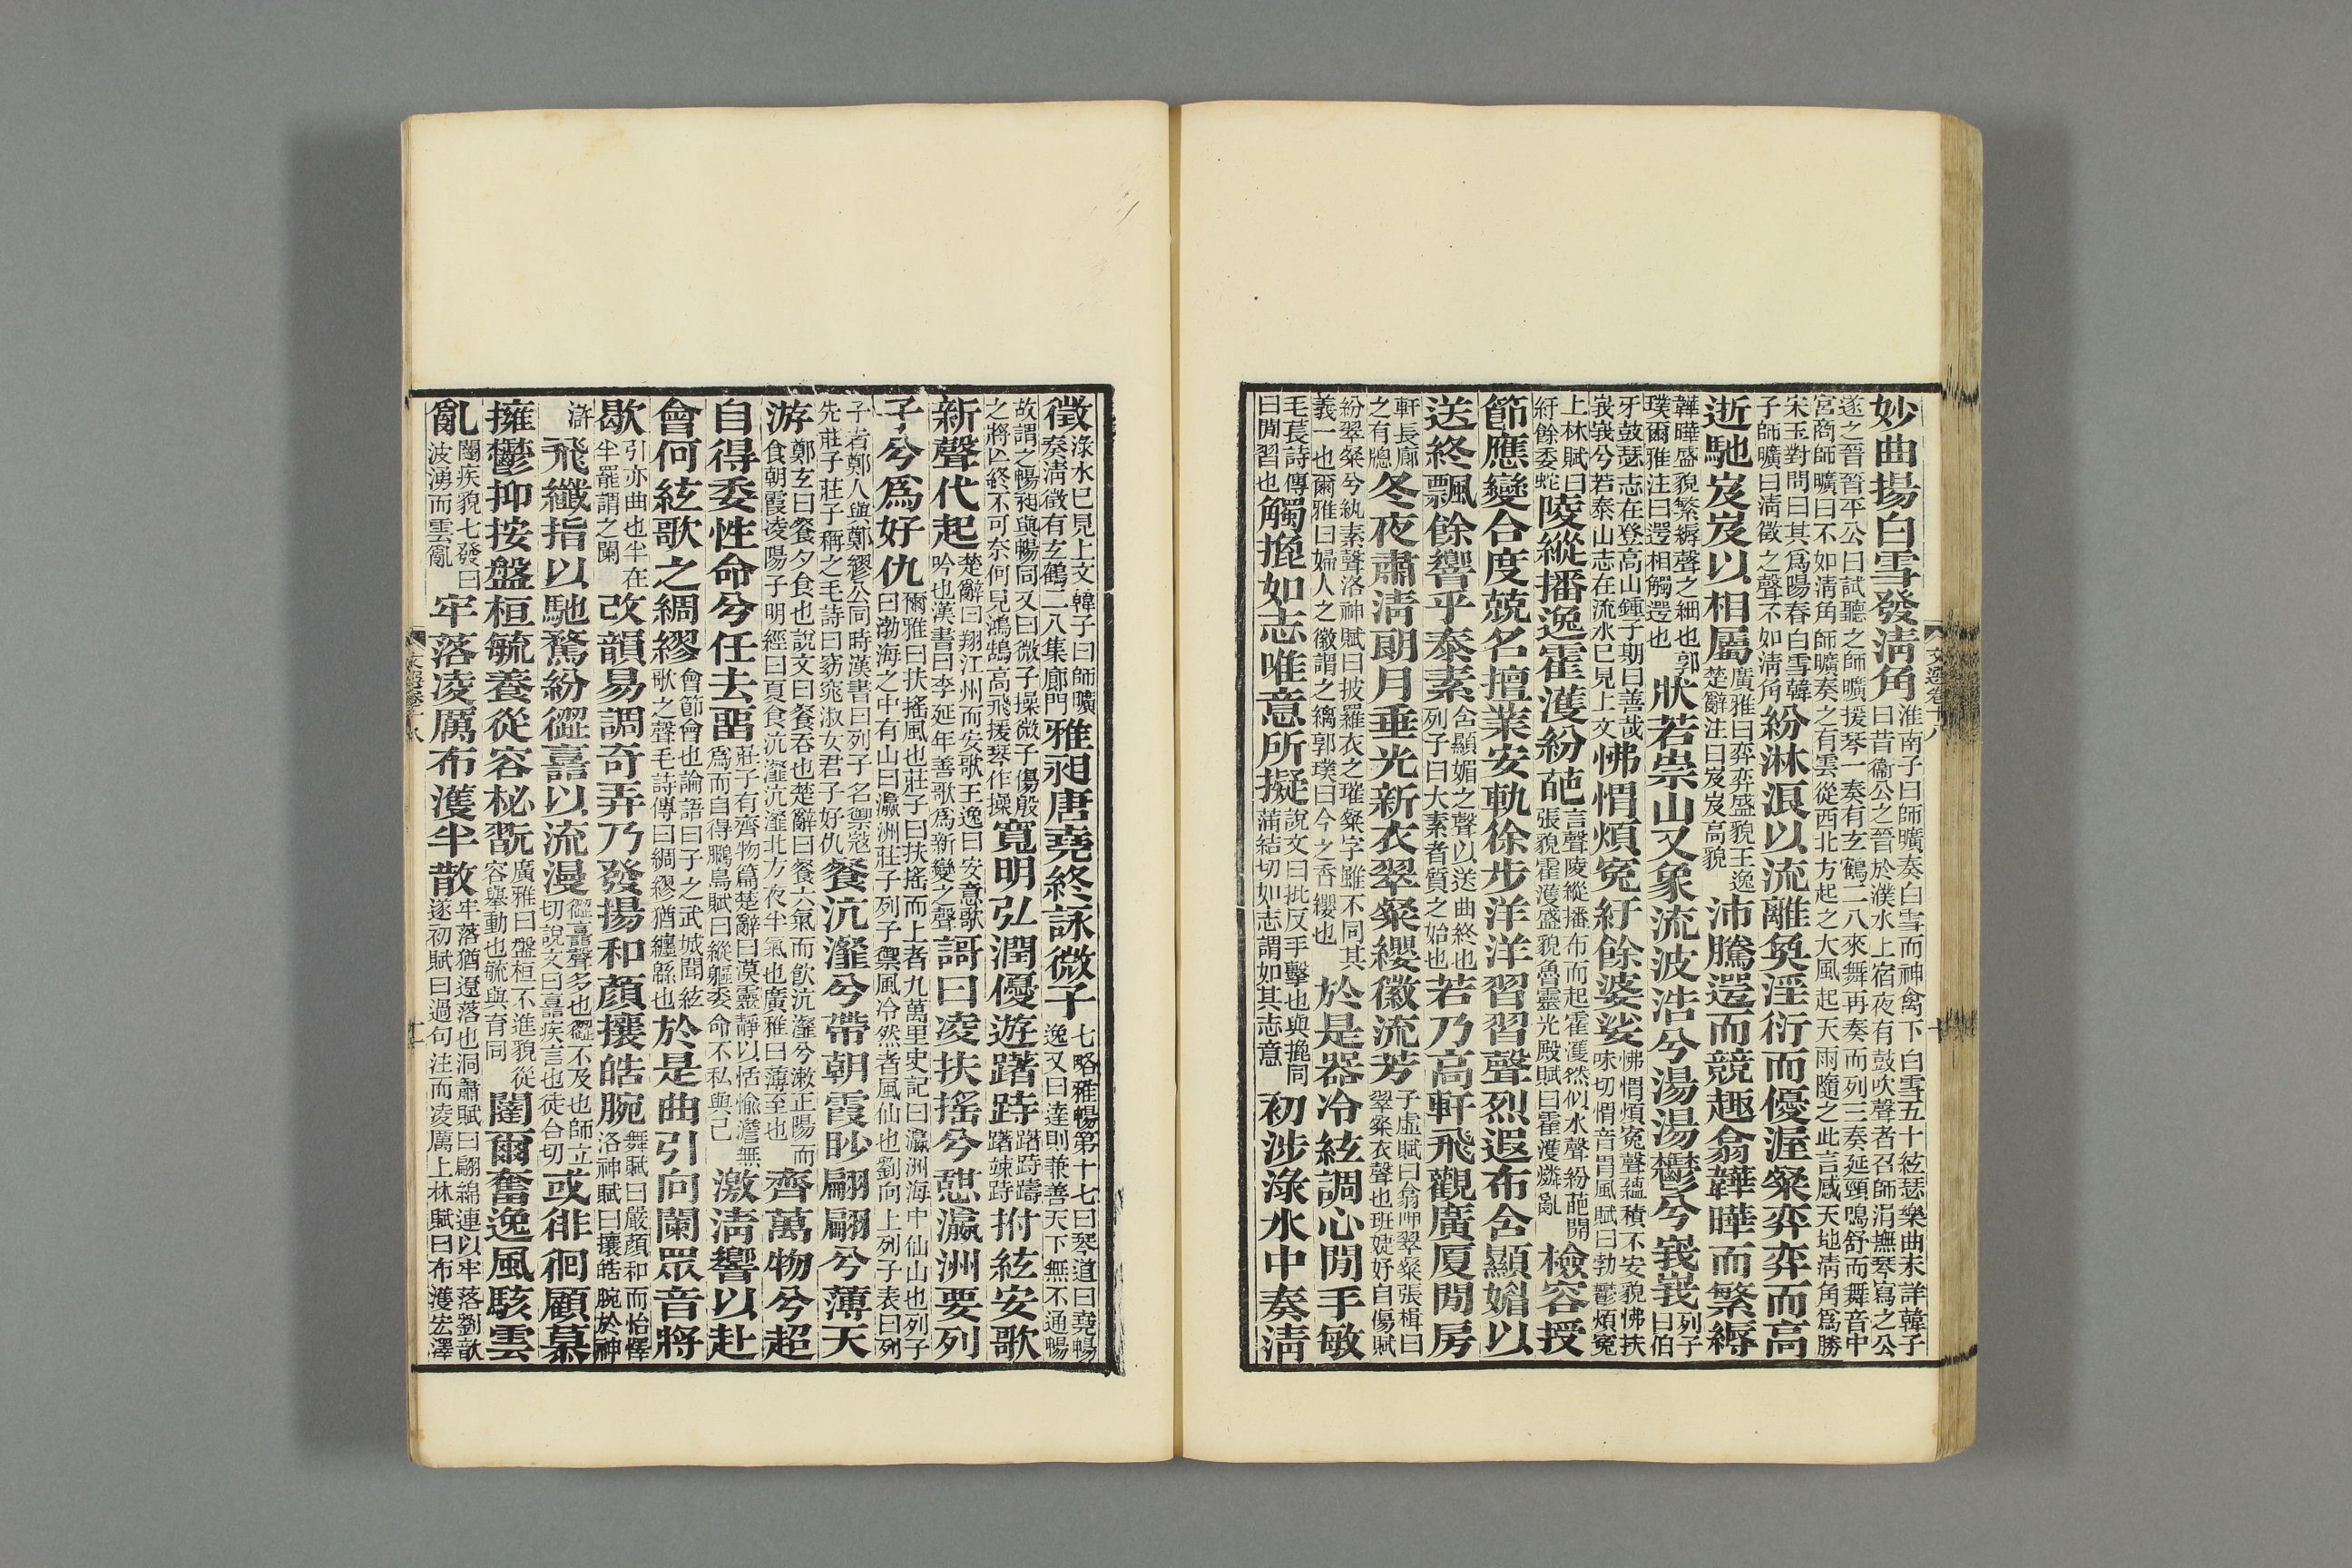 妙曲揚白雪發清角淮南子曰師曠奏白雪而神禽下白雪五十絃瑟樂曲未詳韓子曰昔衞公之晉於濮水上宿夜有鼓吹聲者召師涓撫琴寫之公
遂之晉晉平公曰試聽之師曠援琴一奏有玄鶴二八來舞再奏而列三奏延頸鳴舒而舞音中宮商師曠曰不如清角師曠奏之有雲從西北方起之大風起天雨隨之此言感天地清角爲勝
宋玉對問曰其爲陽春白雪韓子師曠曰清徵之聲不如清角紛淋浪以流離奐淫衍而優渥粲弈弈而高
逝馳岌岌以相屬廣雅曰弈弈盛貌王逸楚辭注曰岌岌高貌沛騰遌而競趣翕韡曄而繁縟
韡曄盛貌繁縟聲之細也郭璞爾雅注曰遌相觸遌也狀若崇山又象流波浩兮湯湯鬱兮峩峩列子曰伯
牙鼓瑟志在登高山鍾子期曰善哉峩峩兮若泰山志在流水已見上文怫㥜煩冤紆餘婆娑怫㥜煩冤聲蘊積不安貌怫扶味切㥜音胃風賦曰勃鬱煩冤
上林賦曰紆餘委蛇陵縱播逸霍濩紛葩言聲陵縱播布而起霍濩然似水聲紛葩開張貌霍濩盛貌魯靈光殿賦曰霍濩燐亂檢容授
節應變合度兢名擅業安軌徐步洋洋習習聲烈遐布含顯媚以
送終飄餘響乎泰素含顯媚之聲以送曲終也列子曰大素者質之始也若乃高軒飛觀廣厦閒房
軒長廊之有牕冬夜肅清朗月垂光新衣翠粲纓徽流芳子虛賦曰翕呷翠粲張楫曰翠粲衣聲也班婕妤自傷賦
紛翠粲兮紈素聲洛神賦曰披羅衣之璀粲字雖不同其義一也爾雅曰婦人之徽謂之縭郭璞曰今之香纓也於是器冷絃調心閒手敏
毛萇詩傳曰閒習也觸㧙如志唯意所擬說文曰批反手擊也與㧙同蒲結切如志謂如其志意初涉淥水中奏清
文選卷十八 十
徵淥水已見上文韓子曰師曠奏清徵有玄鶴二八集廊門雅昶唐堯終詠微子七略雅暢第十七曰琴道曰堯暢逸又曰達則兼善天下無不通暢
故謂之暢昶與暢同又曰微子操微子傷殷之將亡終不可奈何見鴻鵠高飛援琴作操寬明弘潤優遊躇跱躇跱躊躇竦跱拊絃安歌
新聲代起楚辭曰翔江州而安歌王逸曰安意歌吟也漢書曰李延年善歌爲新變之聲謌曰凌扶搖兮憩瀛洲要列
子兮爲好仇爾雅曰扶搖風也莊子曰扶搖而上者九萬里史記曰瀛洲海中仙山也列子曰渤海之中有山曰瀛洲莊子列子禦風冷然者風仙也劉向上列子表曰列
子者鄭人與鄭繆公同時漢書曰列子名禦寇先莊子莊子稱之毛詩曰窈窕淑女君子好仇餐沆瀣兮帶朝霞眇翩翩兮薄天
游鄭玄曰餐夕食也說文曰餐吞也楚辭曰餐六氣而飲沆瀣兮漱正陽而食朝霞凌陽子明經曰夏食沆瀣沆瀣北方夜半氣也廣雅曰薄至也齊萬物兮超
自得委性命兮任去畱莊子有齊物篇楚辭曰漠靈靜以恬愉澹無爲而自得鵩鳥賦曰縱軀委命不私與己激清響以赴
會何絃歌之綢繆會節會也論語曰子之武城聞絃歌之聲毛詩傳曰綢繆猶纏緜也於是曲引向闌眾音將
歇引亦曲也半在半罷謂之闌改韻易調奇弄乃發揚和顏攘皓腕舞賦曰嚴顏和而怡懌洛神賦曰攘皓腕於神
滸飛纖指以馳騖紛㒊譶以流漫㒊譶聲多也㒊不及也師立切說文曰譶疾言也徒合切或徘徊顧慕
擁鬱抑按盤桓毓養從容袐翫廣雅曰盤桓不進貌從容舉動也毓與育同闥爾奮逸風駭雲
亂闥疾貌七發曰波湧而雲亂牢落凌厲布濩半散牢落猶遼落也洞簫賦曰翩緜連以牢落劉歆遂初賦曰過句注而凌厲上林賦曰布濩宏澤